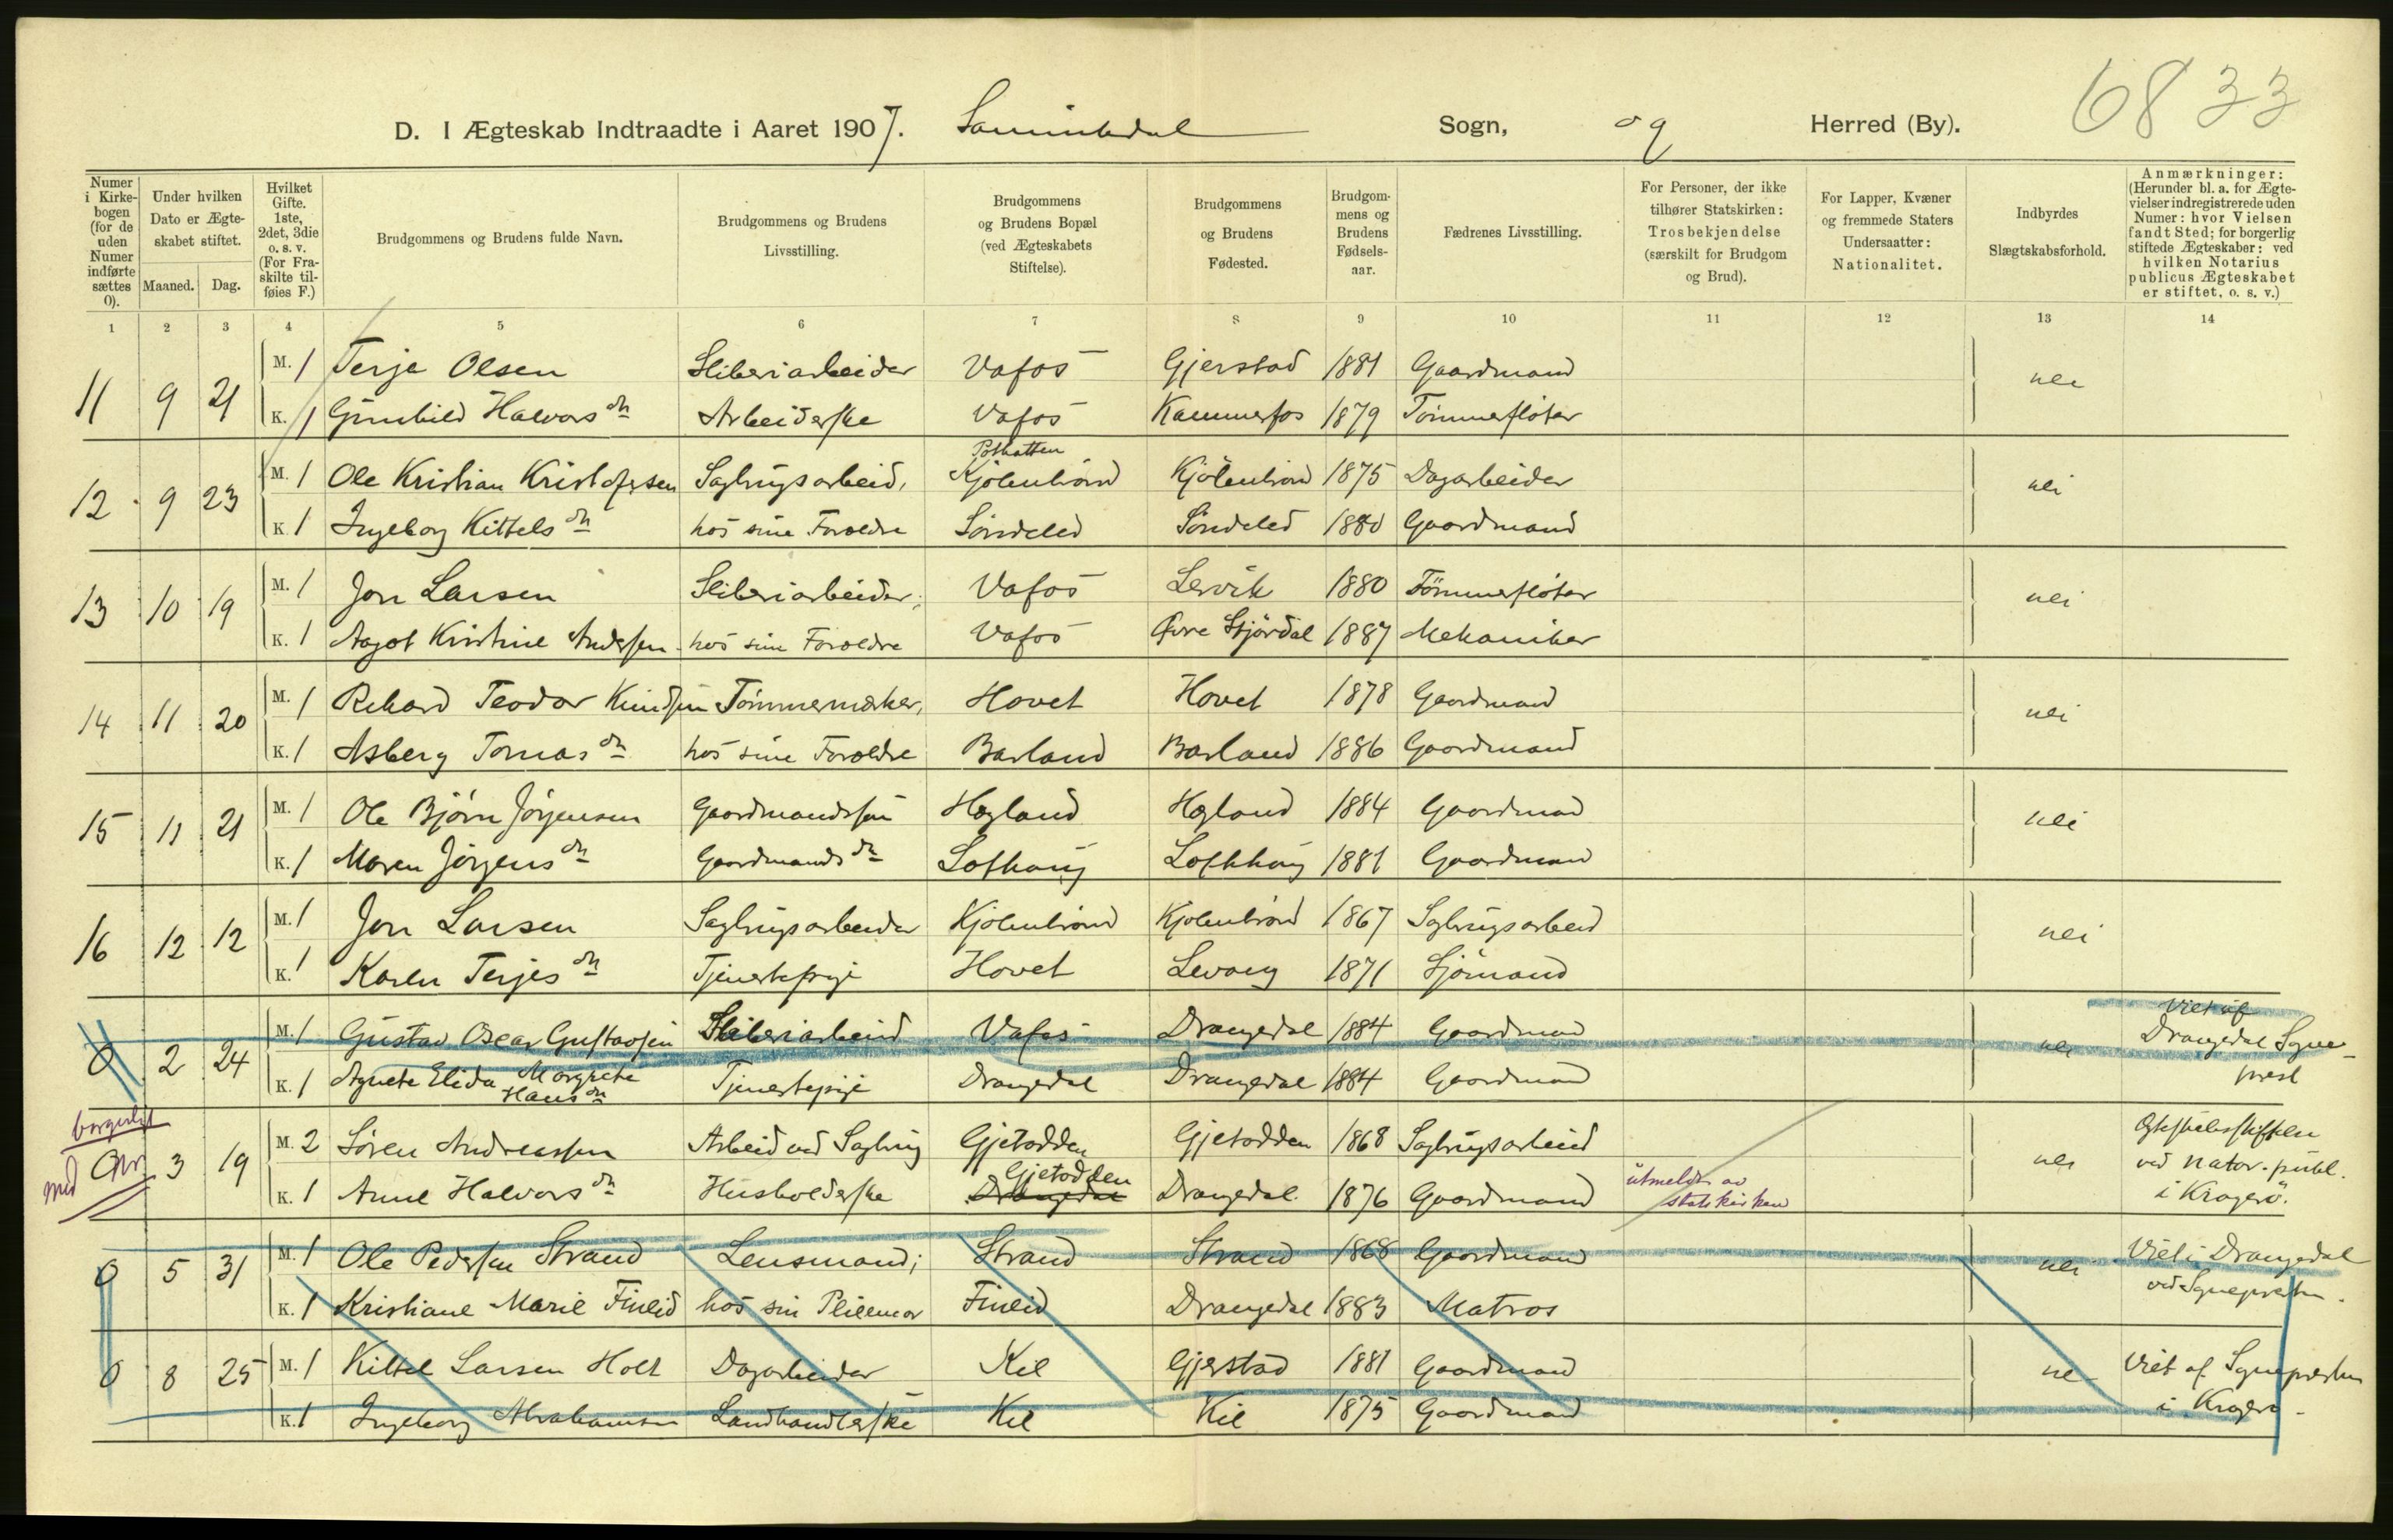 6833
D. I Ægteskab Indtraadte i Aaret 1907. Sannikedal Sogn, og Herred (By).
Numer i Kirkebogen (for de uden Numer indførte sættes 0). | Under hvilken Dato er Ægteskabet stiftet. Maaned. Dag. | Hvilket Gifte. 1ste, 2det, 3die o. s. v. (For Fraskilte tilføies F.) | Brudgommens og Brudens fulde Navn. | Brudgommens og Brudens Livsstilling. | Brudgommens og Brudens Bopæl (ved Ægteskabets Stiftelse). | Brudgommens og Brudens Fødested. | Brudgommens og Brudens Fødselsaar. | Fædrenes Livsstilling. | For Personer, der ikke tilhører Statskirken: Trosbekjendelse (særskilt for Brudgom og Brud). | For Lapper, Kvæner og fremmede Staters Undersaatter: Nationalitet. | Indbyrdes Slægtskabsforhold. | Anmærkninger: (Herunder bl. a. for Ægtevielser indregistrerede uden Numer: hvor Vielsen fandt Sted; for borgerlig stiftede Ægteskaber: ved hvilken Notarius publicus Ægteskabet er stiftet, o. s. v.)
1 2 3 4 5 6 7 8 9 10 11 12 13 14
11 9 21 M. 1 Terje Olsen Sliberiarbeider Vafos Gjerstad 1881 Gaardmand nei
K. 1 Gunhild Halvorsdn Arbeiderske Vafos Kammerfos 1879 Tømmerfløter
12 9 23 M. 1 Ole Kristian Kristofersen Sagbrugsarbeid. Pothatten Kjølenbrønd Kjølenbrønd 1875 Dagarbeider nei
K. 1 Ingeborg Kittelsdn hos sine Forældre Søndeled Søndeled 1880 Gaardmand
13 10 19 M. 1 Jon Larsen Sliberiarbeider; Vafos Lervik 1880 Tømmerfløter nei
K. 1 Aagot Kristine Andersen hos sine Forældre Vafos Øvre Stjørdal 1887 Mekaniker
14 11 20 M. 1 Rikard Teodor Knudsen Tømmermerker, Hovet Hovet 1878 Gaardmand nei
K. 1 Asberg Tomasdn hos sine Forældre Barland Barland 1886 Gaardmand
15 11 21 M. 1 Ole Bjørn Jørgensen Gaardmandssøn Hegland Hegland 1884 Gaardmand nei
K. 1 Maren Jørgensdn Gaardmandsdn Lofthaug Lofthaug 1881 Gaardmand
16 12 12 M. 1 Jon Larsen Sagbrugsarbeider Kjølenbrønd Kjølenbrønd 1867 Sagbrugsarbeid nei
K. 1 Karen Terjesdn Tjenestepige Hovet Levang 1871 Sjømand
0 2 24 M. 1 Gustav Oscar Gustavsen Sliberiarbeid Vafos Drangedal 1884 Gaardmand nei Viet af Drangedal Sogneprest
K. 1 Agnete Elida Margrete Hansdn Tjenestepige Drangedal Drangedal 1884 Gaardmand
borgerligt
med 3 19 M. 2 Søren Andreassen Arbeid ved Sagbrug Gjetodden Gjetodden 1868 Sagbrugsarbeid nei Egteskabsstiftelse ved notar. publ. i Kragerø.
K. 1 Anne Halvorsdn Husholderske Gjetodden Drangedal Drangedal 1876 Gaardmand utmeldt av statskirken
0 5 31 M. 1 Ole Pedersen Strand Lensmand; Strand Strand 1868 Gaardmand nei Viet i Drangedal ved Sognepresten.
K. 1 Kristiane Marie Finlid hos sin Pleiemor Finlid Drangedal 1883 Matros
0 8 25 M. 1 Kittel Larsen Holt Dagarbeider Kil Gjerstad 1881 Gaardmand nei Viet af Sognepresten i Kragerø.
K. 1 Ingeborg Abrahamsen Landhandlerske Kil Kil 1875 Gaardmand